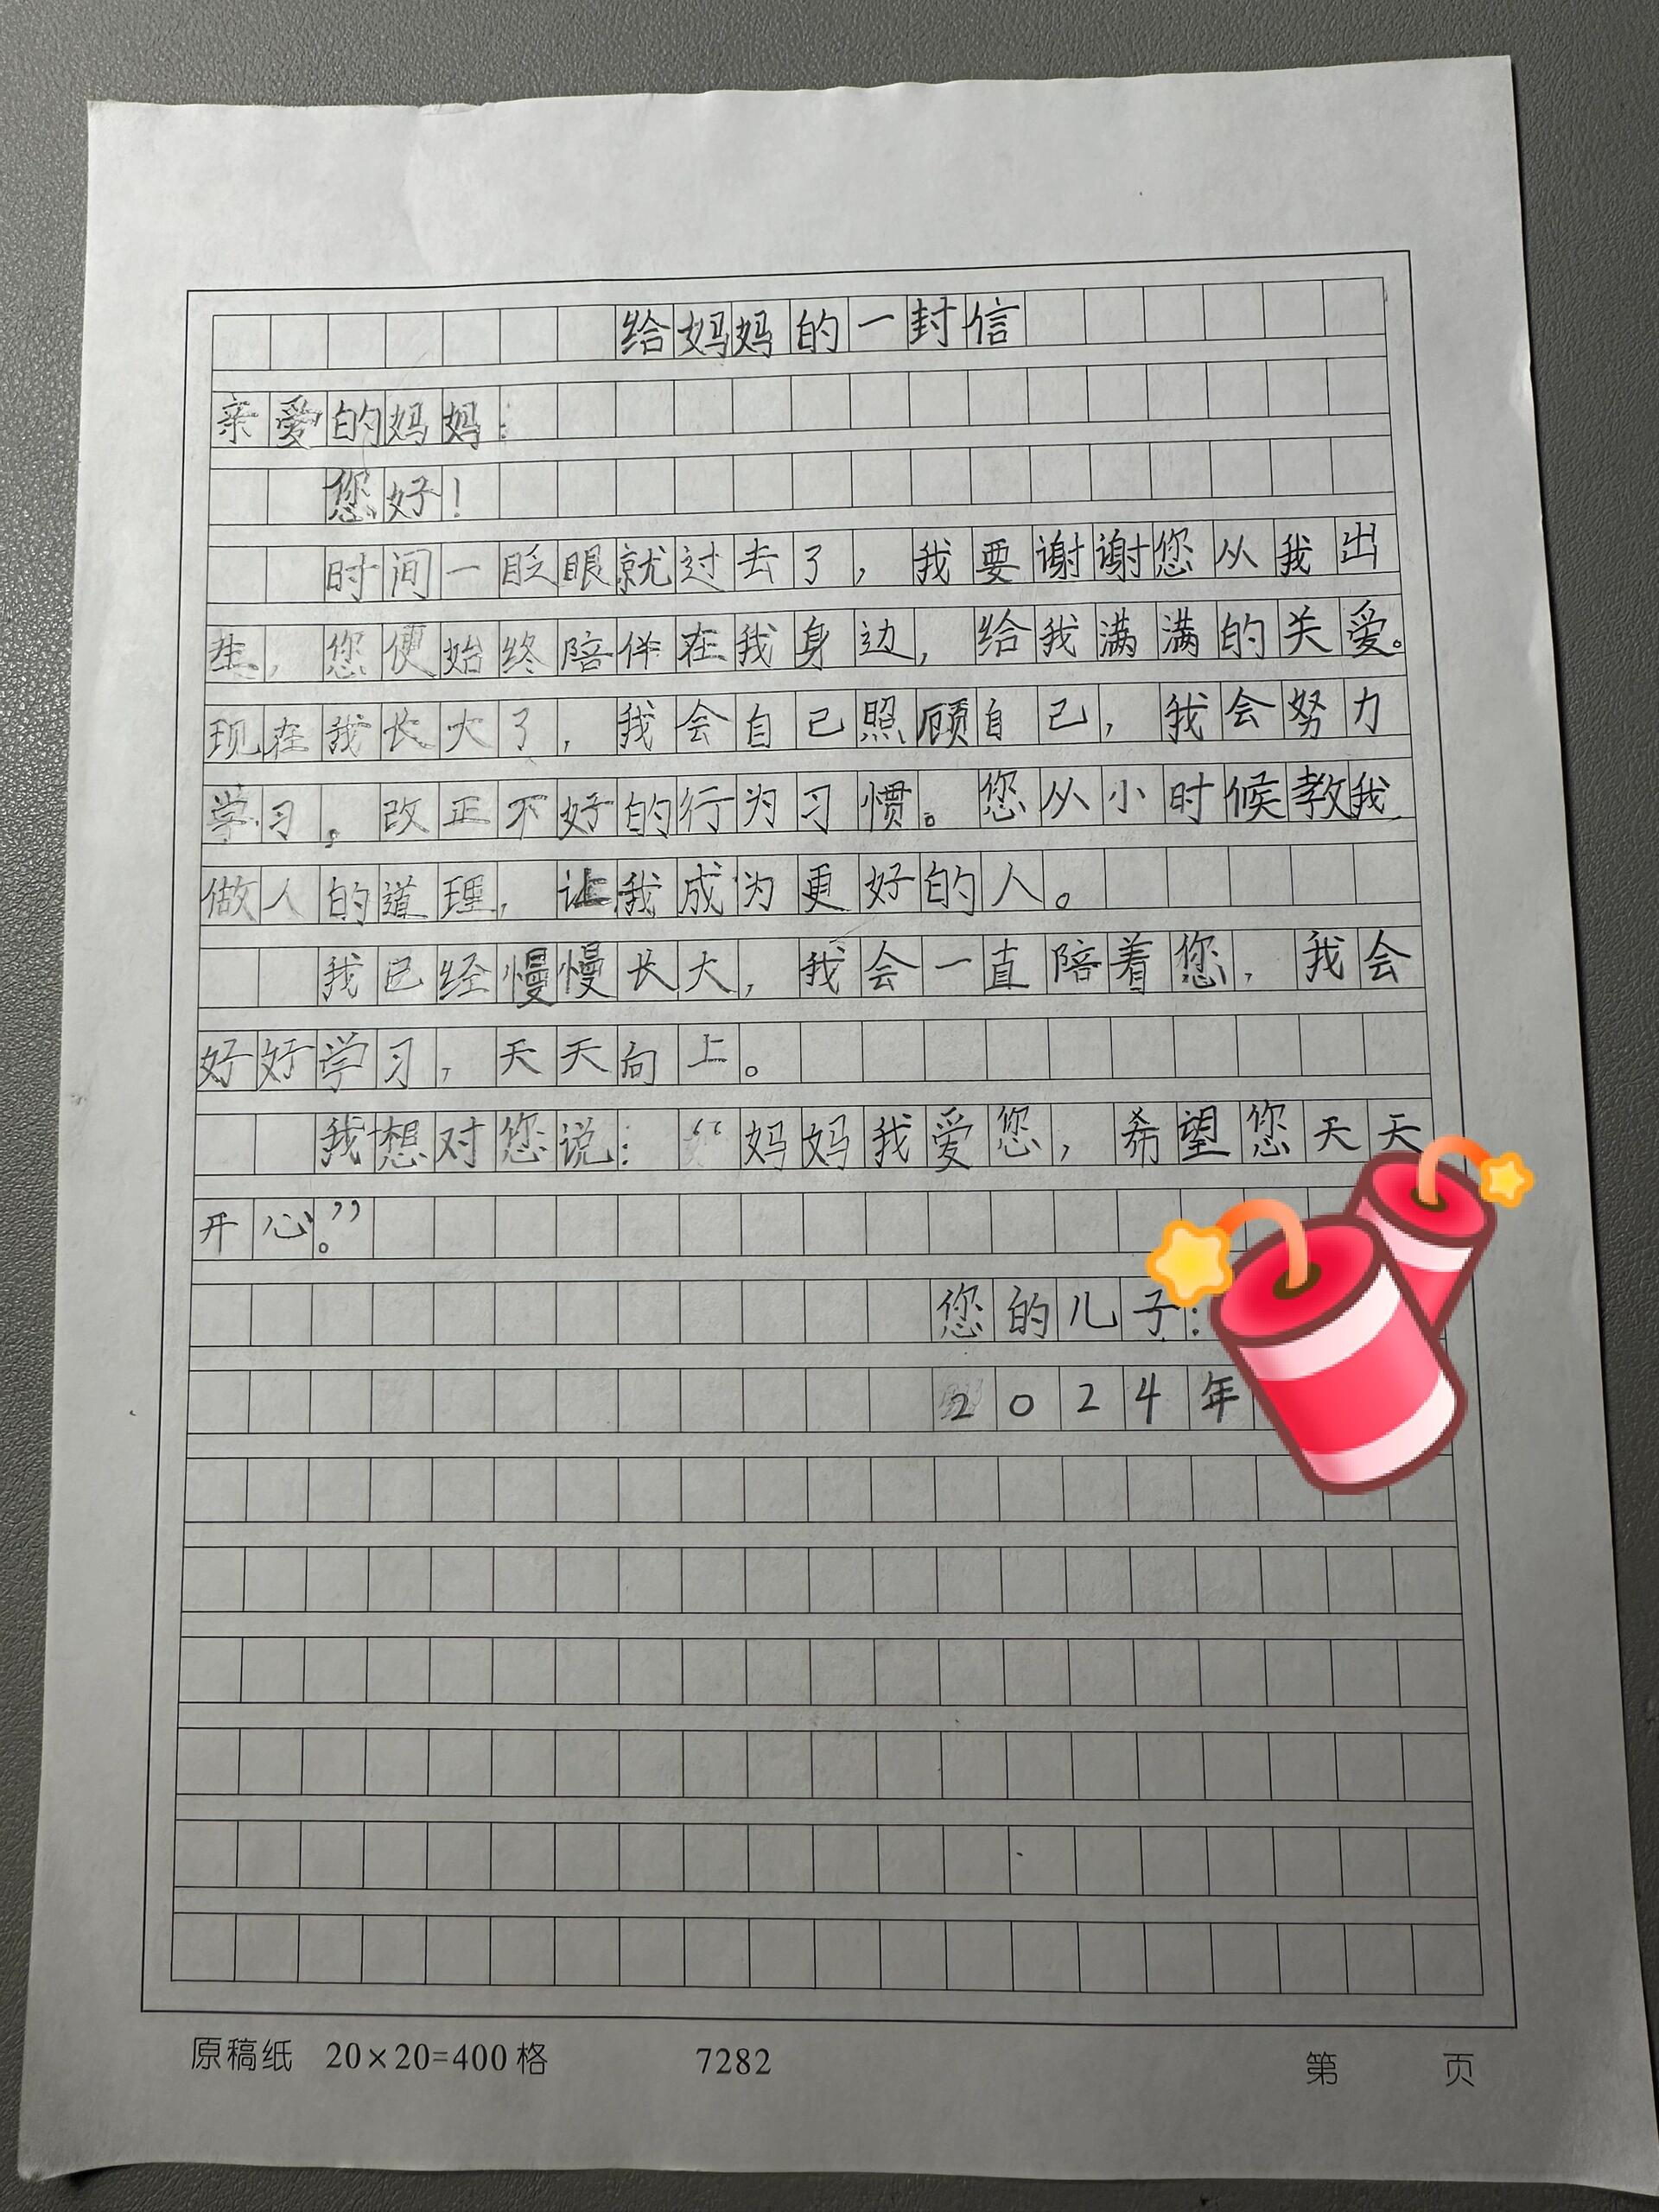 给妈妈的一封信
亲爱的妈妈：
您好！
时间一眨眼就过去了，我要谢谢您从我出
生，您便始终陪伴在我身边，给我满满的关爱。
现在我长大了，我会自己照顾自己，我会努力
学习，改正不好的行为习惯。您从小时候教我
做人的道理，让我成为更好的人。
我已经慢慢长大，我会一直陪着您，我会
好好学习，天天向上。
我想对您说：“妈妈我爱您，希望您天天
开心。”
您的儿子：
2024年
原稿纸 20×20=400格 7282 第 页